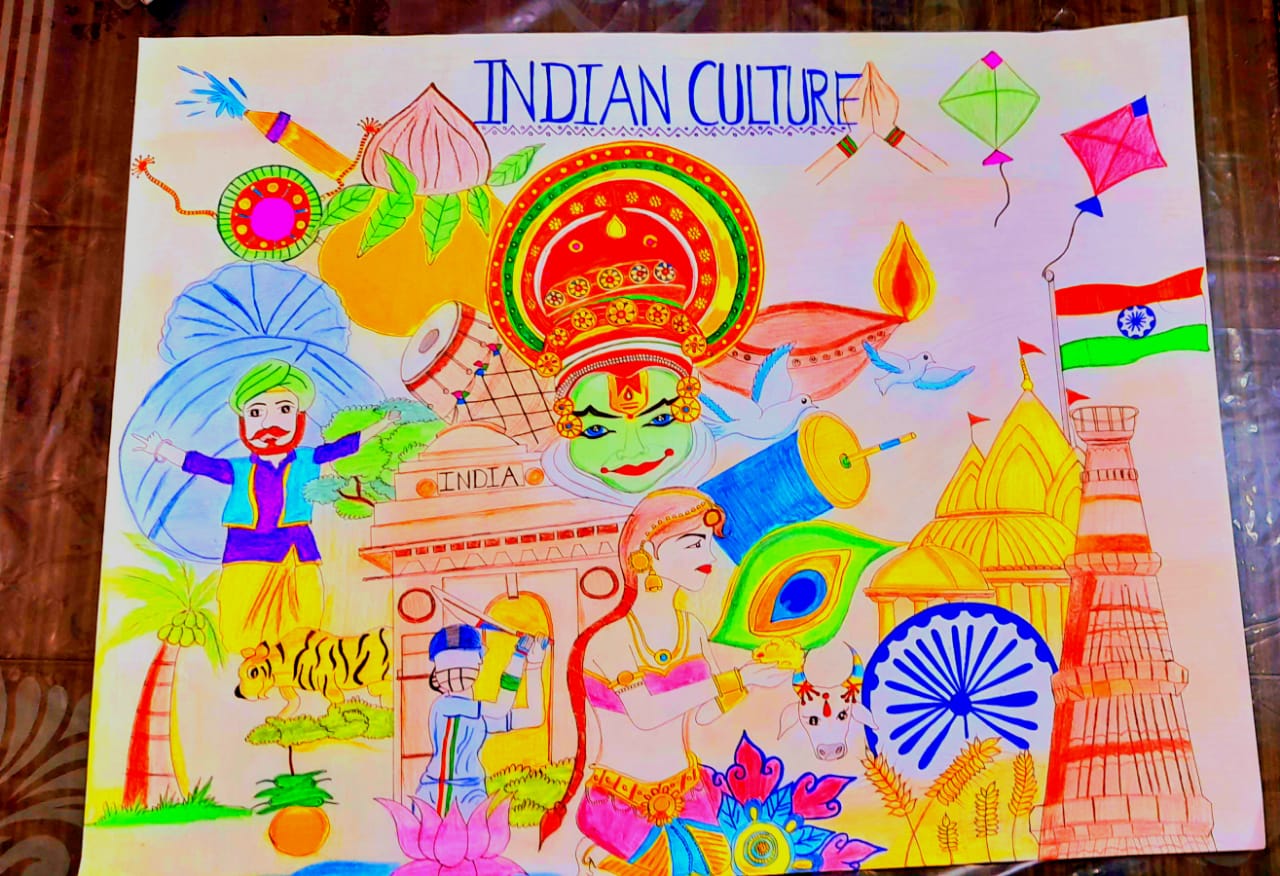 INDIAN CULTURE
INDIA